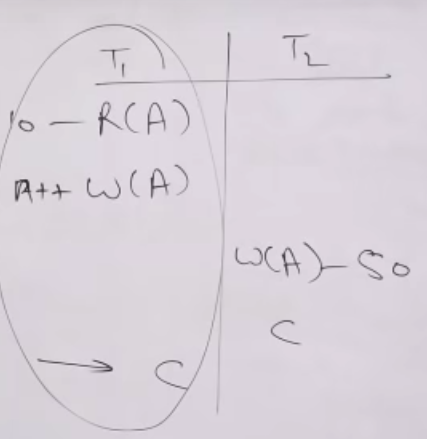 T1 T2
10 — R(A)
A++ W(A)
W(A) — 50
C
→ C